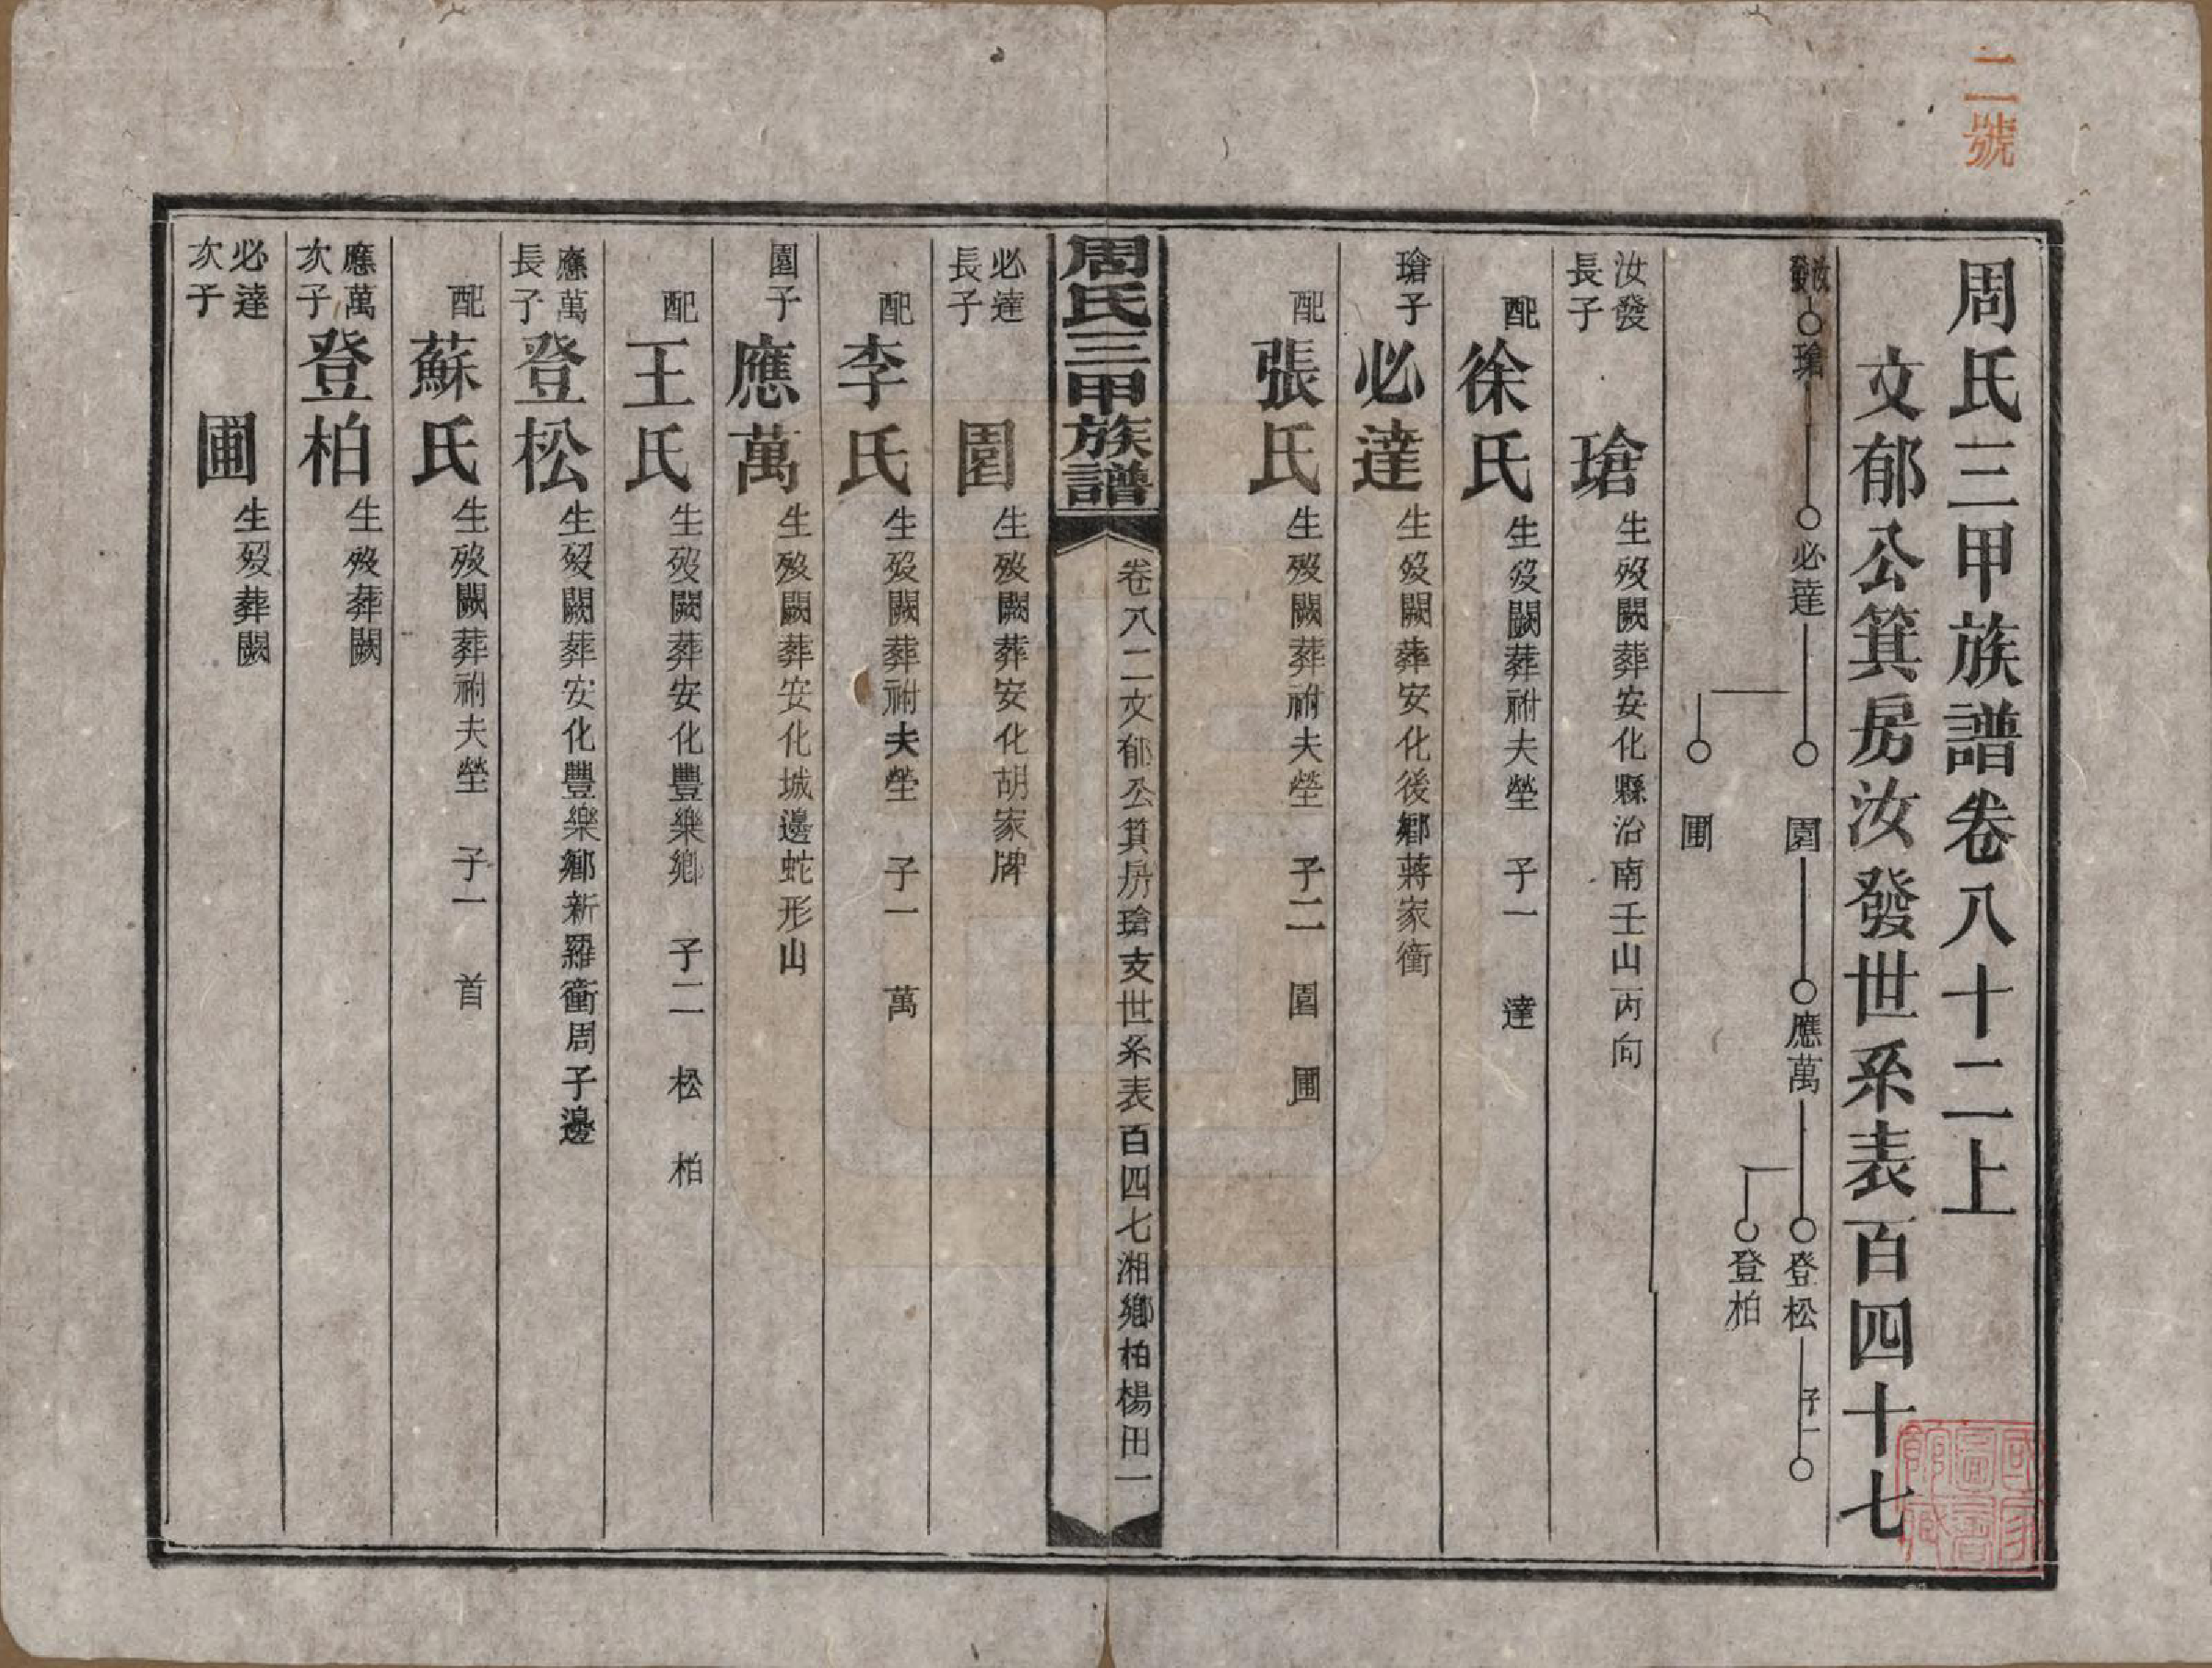 二號
周氏三甲族譜卷八十二上
文郁公箕房汝發世系表百四十七
汝發 瑲 必達 園 應萬 登松 子一
圃 登柏
汝發長子 瑲 生歿闕葬安化縣治南壬山丙向
配 徐氏 生歿闕葬祔夫塋 子一 達
瑲子 必達 生歿闕葬安化後鄉蔣家衝
配 張氏 生歿闕葬祔夫塋 子二 園 圃
周氏三甲族譜 卷八二文郁公箕房瑲支世系表百四七湘鄉柏楊田一
必達長子 園 生歿闕葬安化胡家牌
配 李氏 生歿闕葬祔夫塋 子一 萬
園子 應萬 生歿闕葬安化城邊蛇形山
配 王氏 生歿闕葬安化豐樂鄉 子二 松 柏
應萬長子 登松 生歿闕葬安化豐樂鄉新羅衝周子邊
配 蘇氏 生歿闕葬祔夫塋 子一 首
應萬次子 登柏 生歿葬闕
必達次子 圃 生歿葬闕
國家圖書館藏